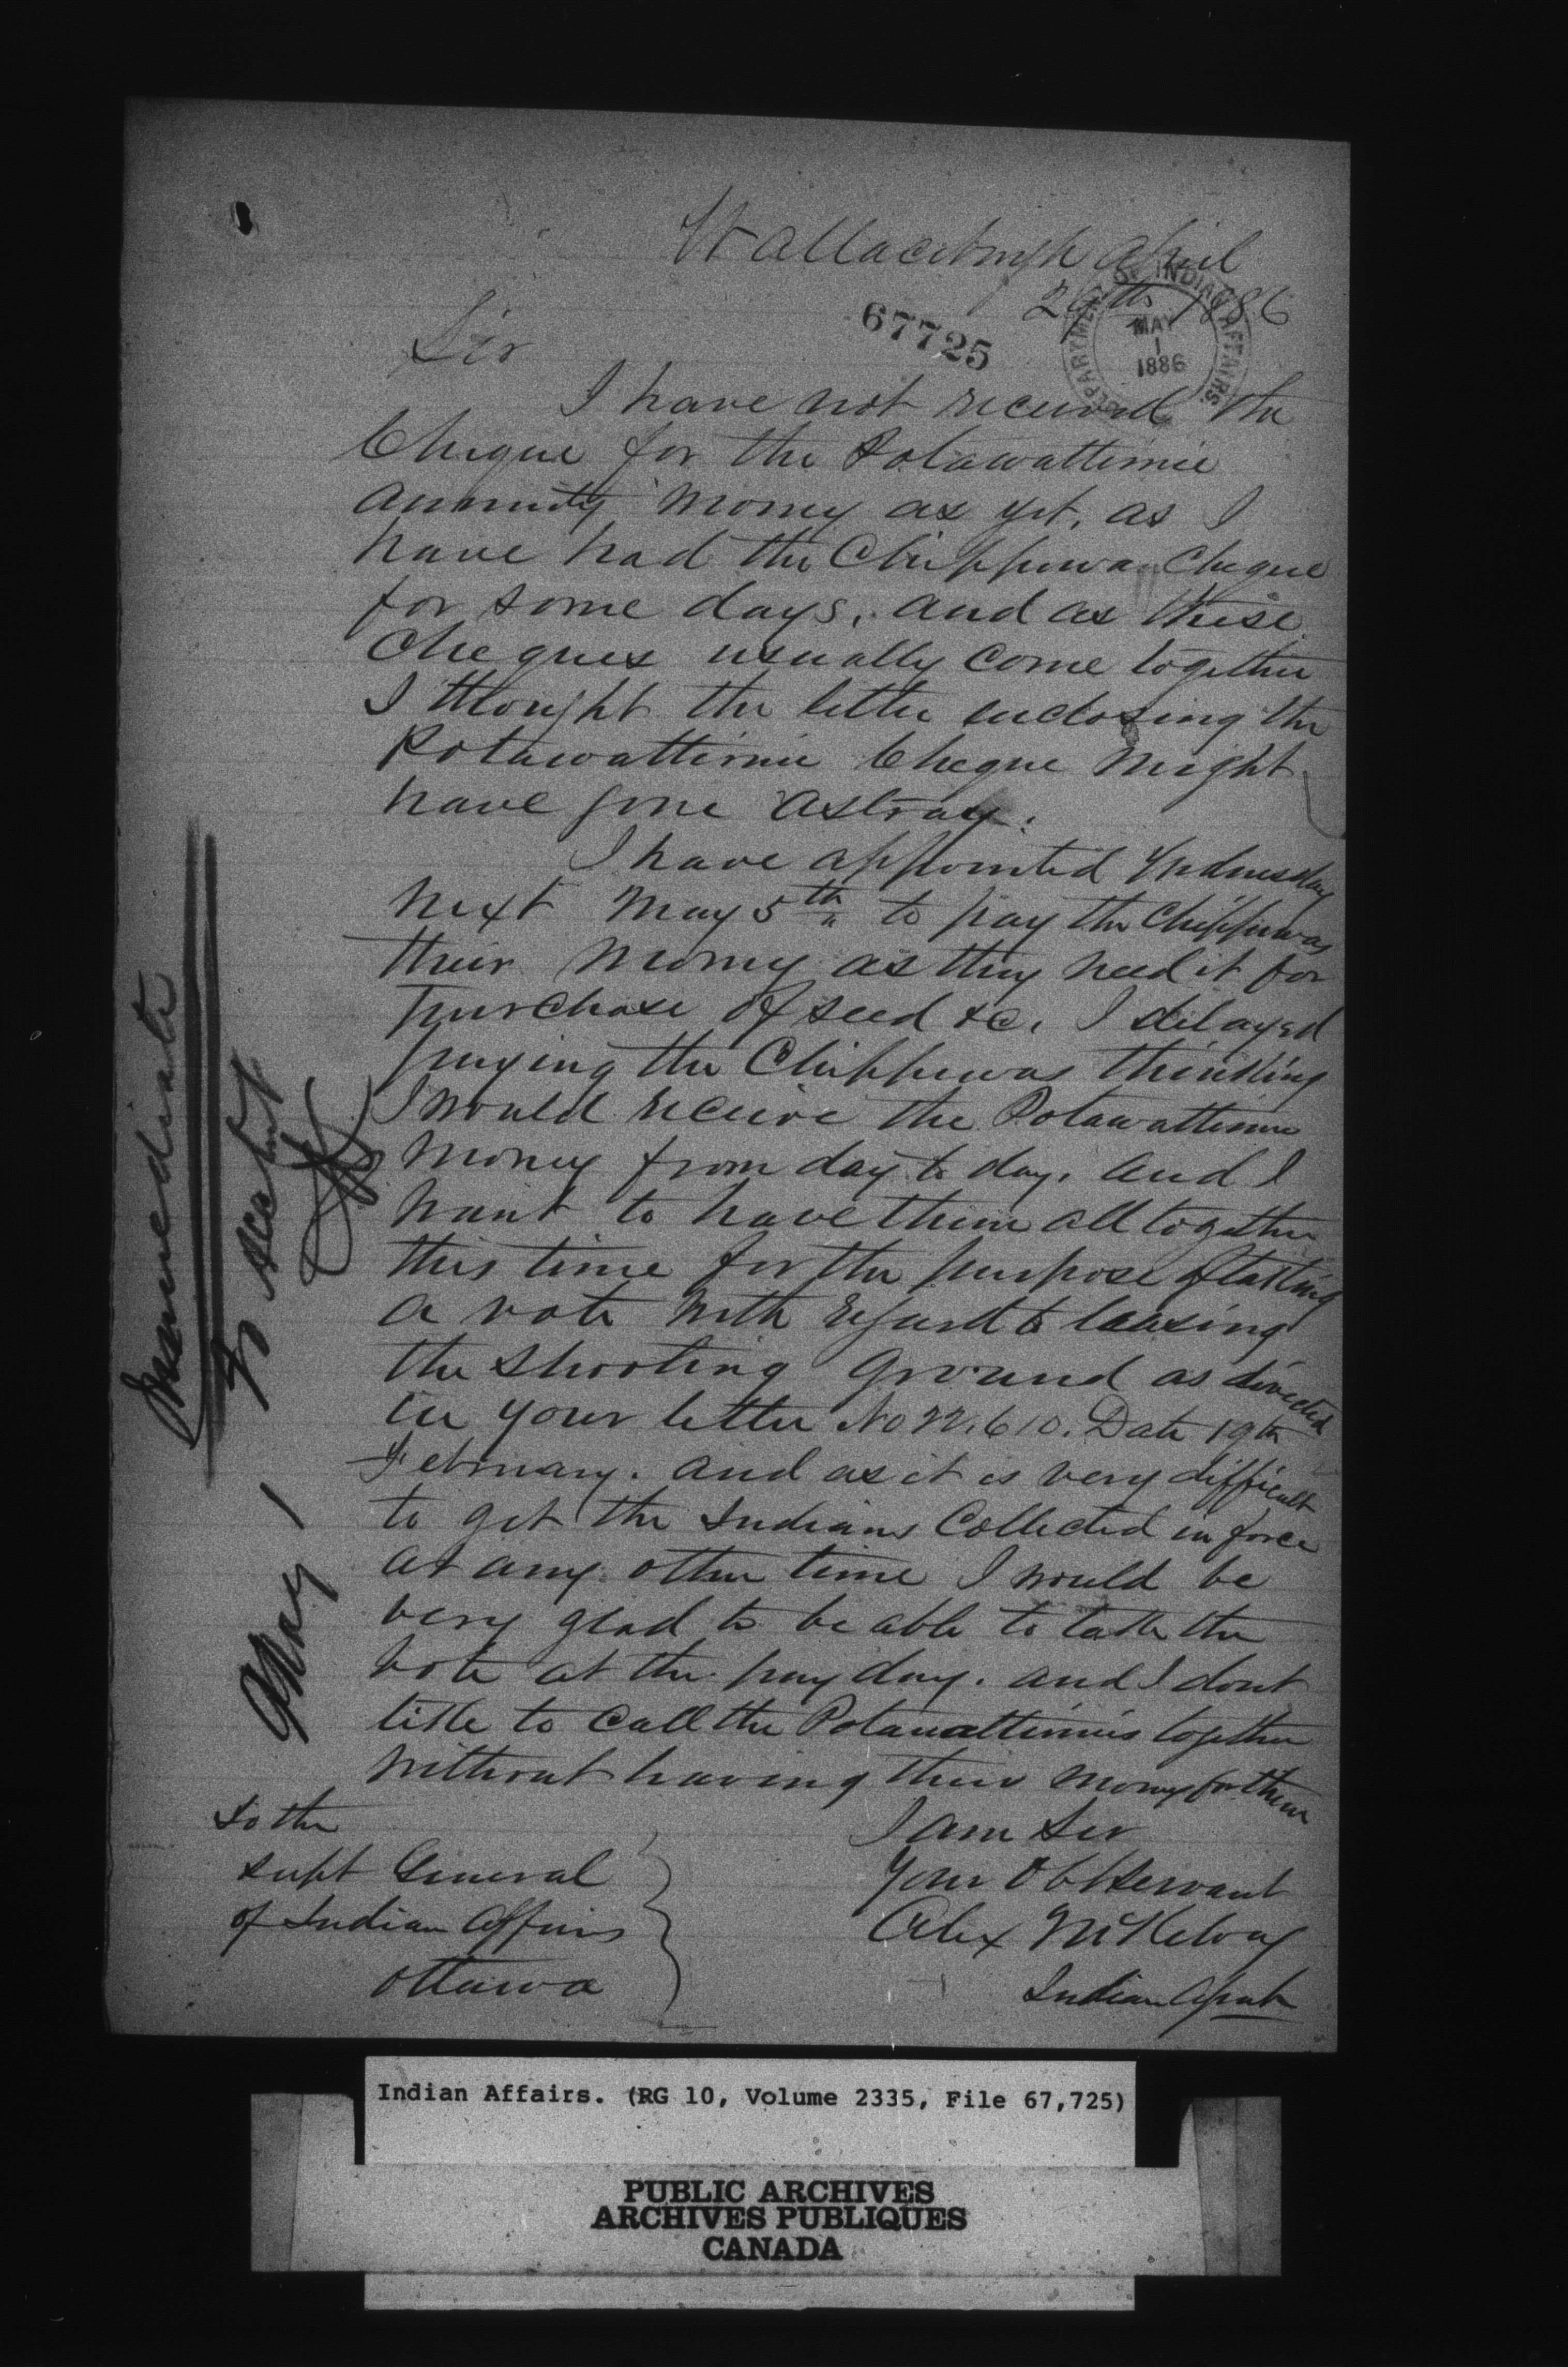 Wallaceburgh April
29th 1886
67725
DEPARTMENT OF INDIAN AFFAIRS
MAY
1
1886
Sir
I have not received the
Cheque for the Potawattimie
annuity money as yet, as I
have had the Chippewa Cheque
for some days, and as these
Cheques usually come together
I thought the letter enclosing the
Potawattimie Cheque might
have gone astray.
I have appointed Wednesday
next May 5th to pay the Chippewas
their money as they need it for
purchase of seed &c. I delayed
paying the Chippewas thinking
I would receive the Potawattimie
money from day to day. and I
want to have them all together
this time for the purpose of taking
a vote with regard to leasing
the shooting ground as directed
in your letter No Date 19th
February. and as it is very difficult
to get the Indians Collected in force
at any other time I would be
very glad to be able to take the
vote at the pay day. and I dont
like to call the Potawattimies together
without having their money for them
I am Sir
Your Obt Servant
Alex McKelvey
Indian Agent
To the
Supt General
of Indian Affairs
Ottawa
Immediate
May 1
Indian Affairs. (RG 10, Volume 2335, File 67,725)
PUBLIC ARCHIVES
ARCHIVES PUBLIQUES
CANADA